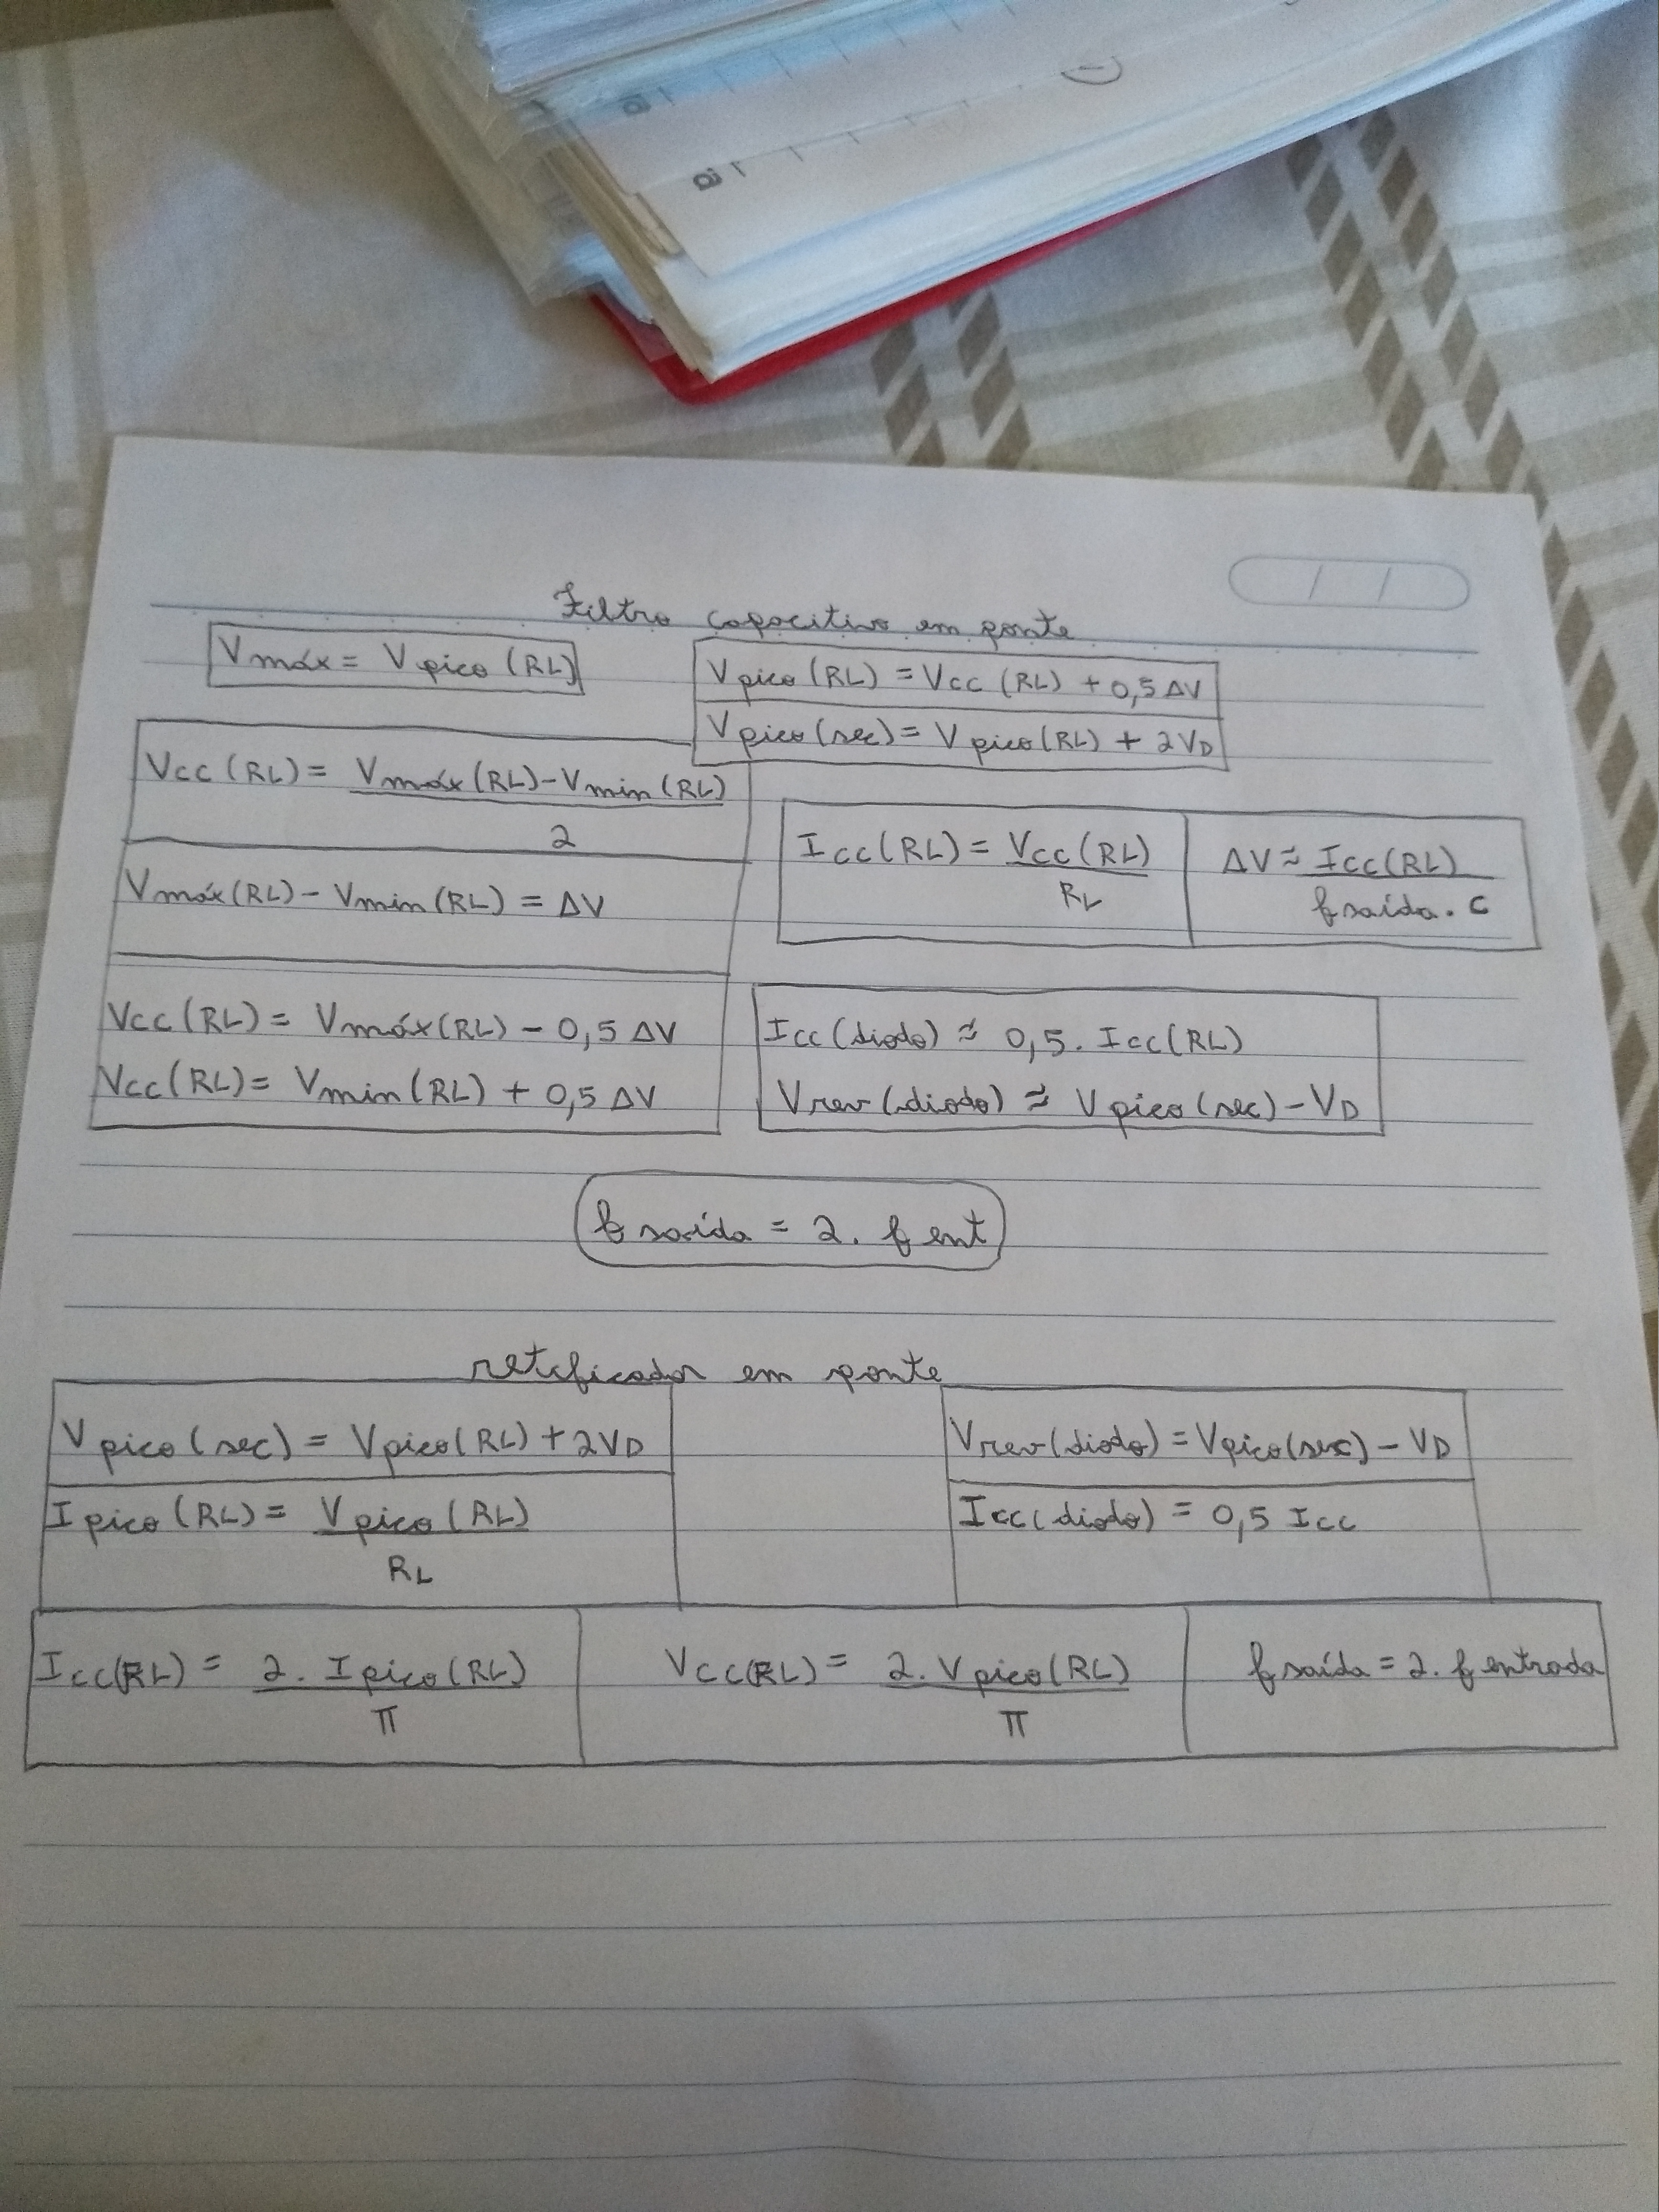 Filtro capacitivo em ponte
Vmáx = Vpico (RL)
Vpico (RL) = Vcc (RL) + 0,5 ΔV
Vpico (sec) = Vpico (RL) + 2VD
Vcc (RL) = Vmáx (RL) - Vmin (RL)
2
Vmáx (RL) - Vmin (RL) = ΔV
Vcc (RL) = Vmáx (RL) - 0,5 ΔV
Vcc (RL) = Vmin (RL) + 0,5 ΔV
Icc (RL) = Vcc (RL)
RL
ΔV ≈ Icc (RL)
f saída . C
Icc (diodo) ≈ 0,5 . Icc (RL)
Vrev (diodo) ≈ Vpico (sec) - VD
f saída = 2 . f ent
retificador em ponte
Vpico (sec) = Vpico (RL) + 2VD
Ipico (RL) = Vpico (RL)
RL
Vrev (diodo) = Vpico (sec) - VD
Icc (diodo) = 0,5 Icc
Icc (RL) = 2 . Ipico (RL)
π
Vcc (RL) = 2 . Vpico (RL)
π
f saída = 2 . f entrada